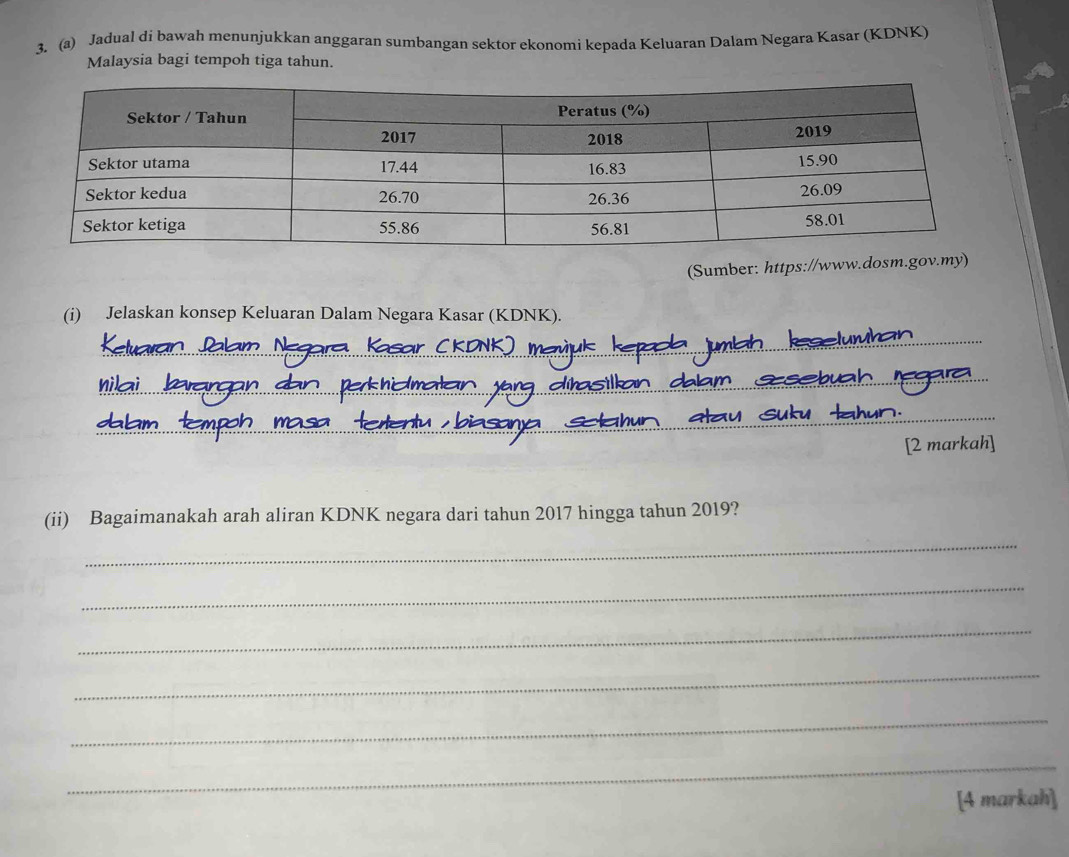 3. (a) Jadual di bawah menunjukkan anggaran sumbangan sektor ekonomi kepada Keluaran Dalam Negara Kasar (KDNK)
Malaysia bagi tempoh tiga tahun.
Sektor / Tahun Peratus (%)
2017 2018 2019
Sektor utama 17.44 16.83 15.90
Sektor kedua 26.70 26.36 26.09
Sektor ketiga 55.86 56.81 58.01
(Sumber: https://www.dosm.gov.my)
(i) Jelaskan konsep Keluaran Dalam Negara Kasar (KDNK).
Keluaran Dalam Negara Kasar (KDNK) merujuk kepada jumlah keseluruhan
nilai barangan dan perkhidmatan yang dihasilkan dalam sesebuah negara
dalam tempoh masa tertentu, biasanya setahun atau suku tahun.
[2 markah]
(ii) Bagaimanakah arah aliran KDNK negara dari tahun 2017 hingga tahun 2019?
[4 markah]